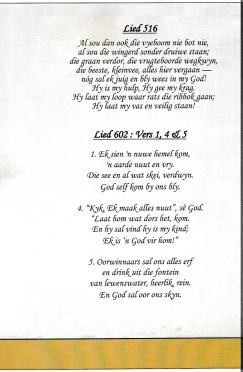 Lied 516
Al sou dan ook die vyeboom nie bot nie,
al sou die wingerd sonder druiwe staan;
die graan verdor, die vrugteboorde wegkwyn,
die beeste, kleinvee, alles hier vergaan —
nóg sal ek juig en bly wees in my God!
Hy is my hulp, Hy gee my krag.
Hy laat my loop waar rats die ribbok gaan;
Hy laat my vas en veilig staan!
Lied 602 : Vers 1, 4 & 5
1. Ek sien 'n nuwe hemel kom,
'n aarde nuut en vry.
Die see en al wat skei, verdwyn.
God self kom by ons bly.
4. "Kyk, Ek maak alles nuut", sê God.
"Laat hom wat dors het, kom.
En hy sal vind hy is my kind;
Ek is 'n God vir hom!"
5. Oorwinnaars sal ons alles erf
en drink uit die fontein
van lewenswater, heerlik, rein.
En God sal oor ons skyn.